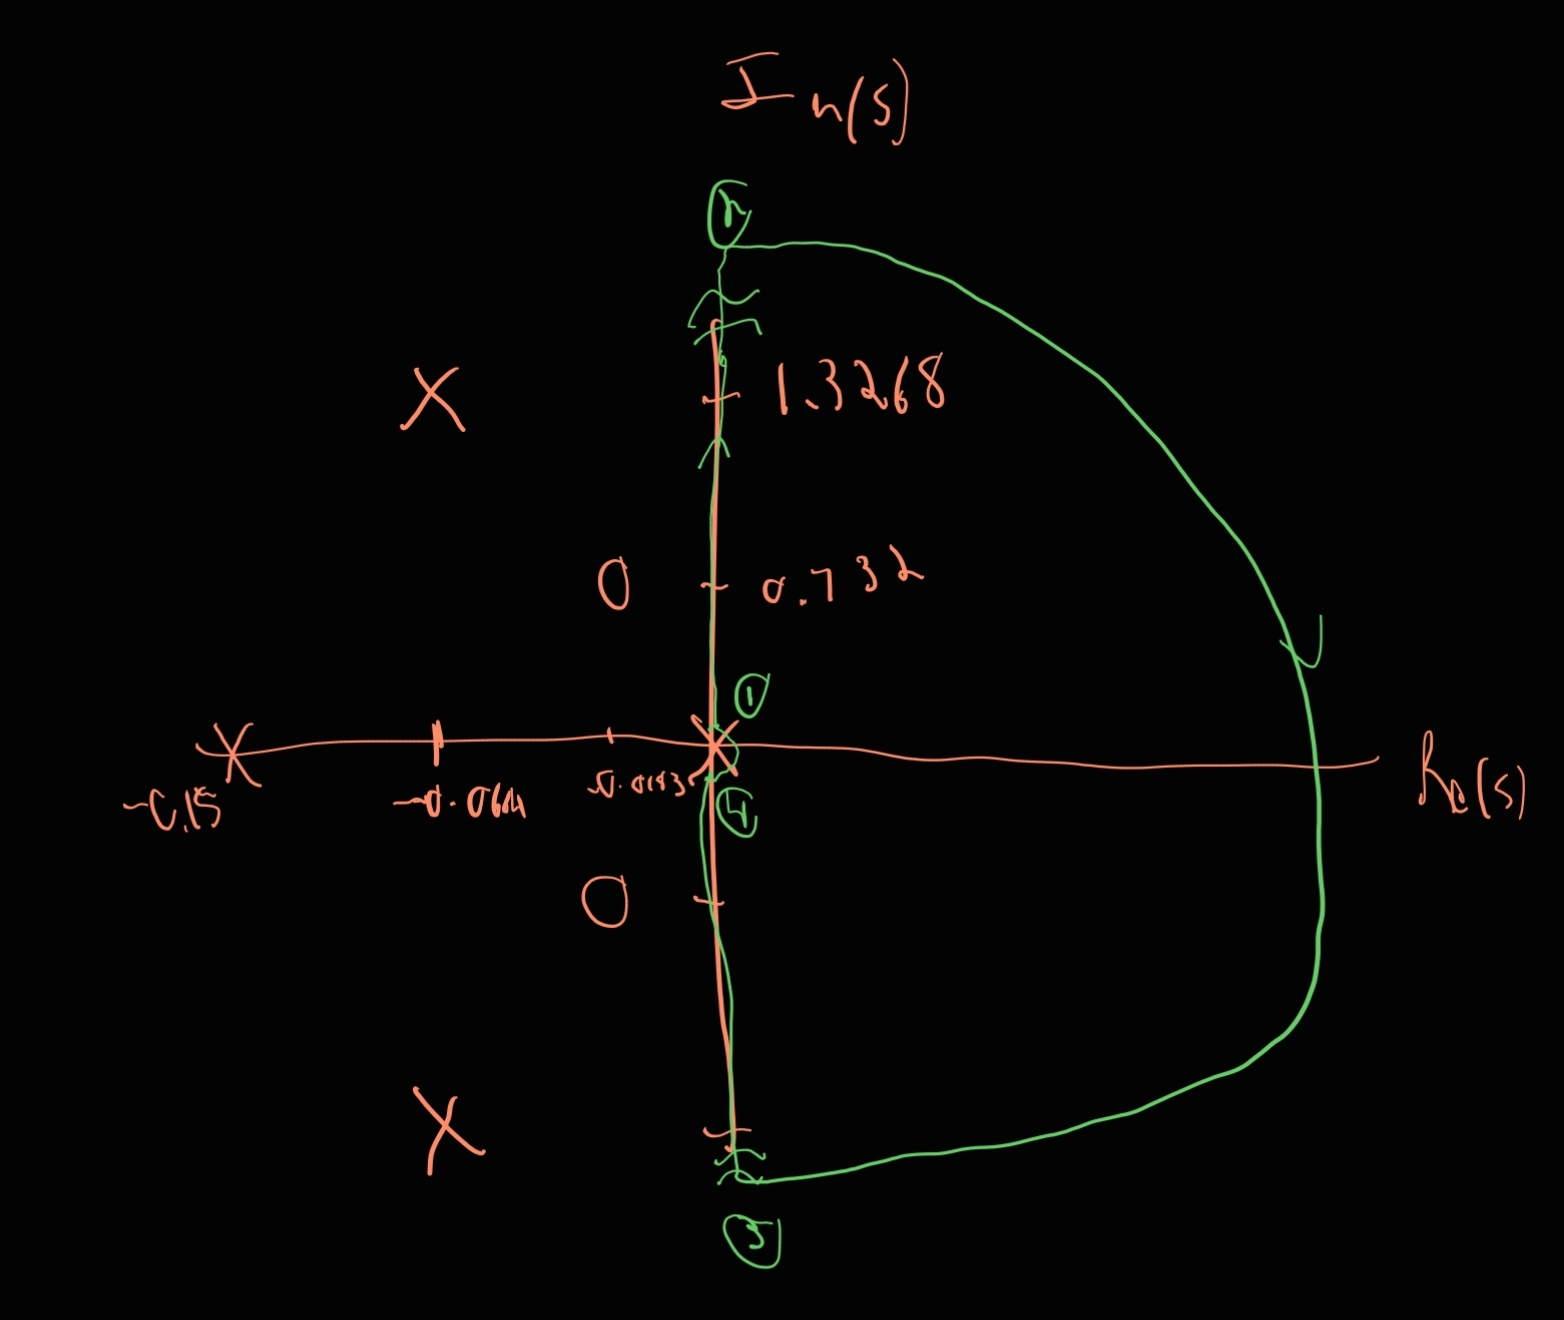 Im(s)
2
1.3268
0.732
1
-0.15
-0.064
-0.0183
Re(s)
4
3